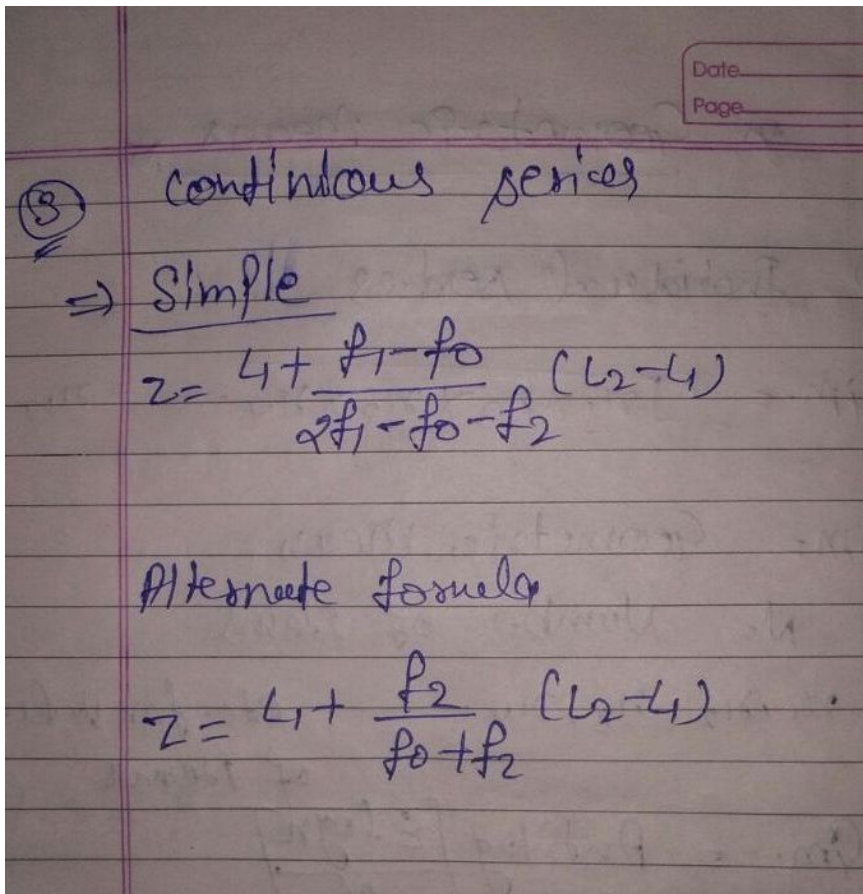 Date
Page
3 continuous series
⇒ Simple
z = L1 + (f1 - f0) / (2f1 - f0 - f2) (L2 - L1)
Alternate formula
z = L1 + f2 / (f0 + f2) (L2 - L1)